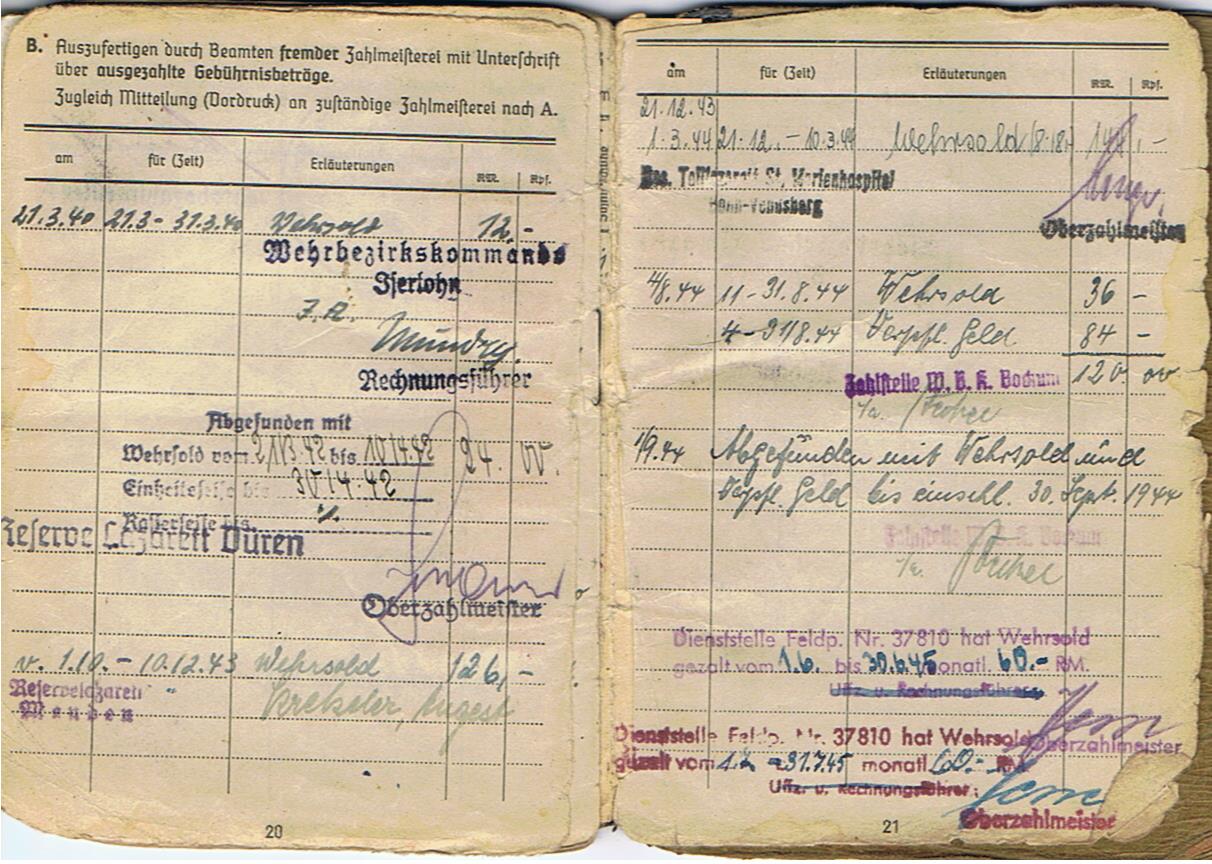 B. Auszufertigen durch Beamten fremder Zahlmeisterei mit Unterschrift
über ausgezahlte Gebührnisbeträge.
Zugleich Mitteilung (Vordruck) an zuständige Zahlmeisterei nach A.
am für (Zeit) Erläuterungen RM. Rpf.
21.3.40 21.3 - 31.3.40 Wehrsold 12.-
Wehrbezirkskommando
Iserlohn
J.A.
Rechnungsführer
Abgefunden mit
Wehrsold vom 21/3.42 bis 10/4.42 24.
bis 30/4.42
Reserve Lazarett Düren
Oberzahlmeister
v. 1.10. - 10.12.43 Wehrsold 126,-
Reservelazarett "
Menden
20
am für (Zeit) Erläuterungen RM. Rpf.
21.12.43
1.3.44 21.12. - 10.3.44 Wehrsold
Res. Teillazarett St. Marienhospital
Bonn-Venusberg
Oberzahlmeister
4/8.44 11 - 31.8.44 Wehrsold 36 -
4 - 31/8.44 Verpfl. Geld 84 -
Zahlstelle W. B. K. Bochum 120.
1/9.44 Abgefunden mit Wehrsold und
Verpfl. Geld bis einschl. 30. Sept. 1944
Zahlstelle W. B. K. Bochum
Dienststelle Feldp. Nr. 37810 hat Wehrsold
gezalt vom 1.6. bis 30.6.45 monatl. 60.- RM.
Uffz. u. Rechnungsführer
Oberzahlmeister
Dienststelle Feldp. Nr. 37810 hat Wehrsold
gezalt vom - 31.7.45 monatl 60.- RM
Uffz. u. Rechnungsführer
Oberzahlmeister
21